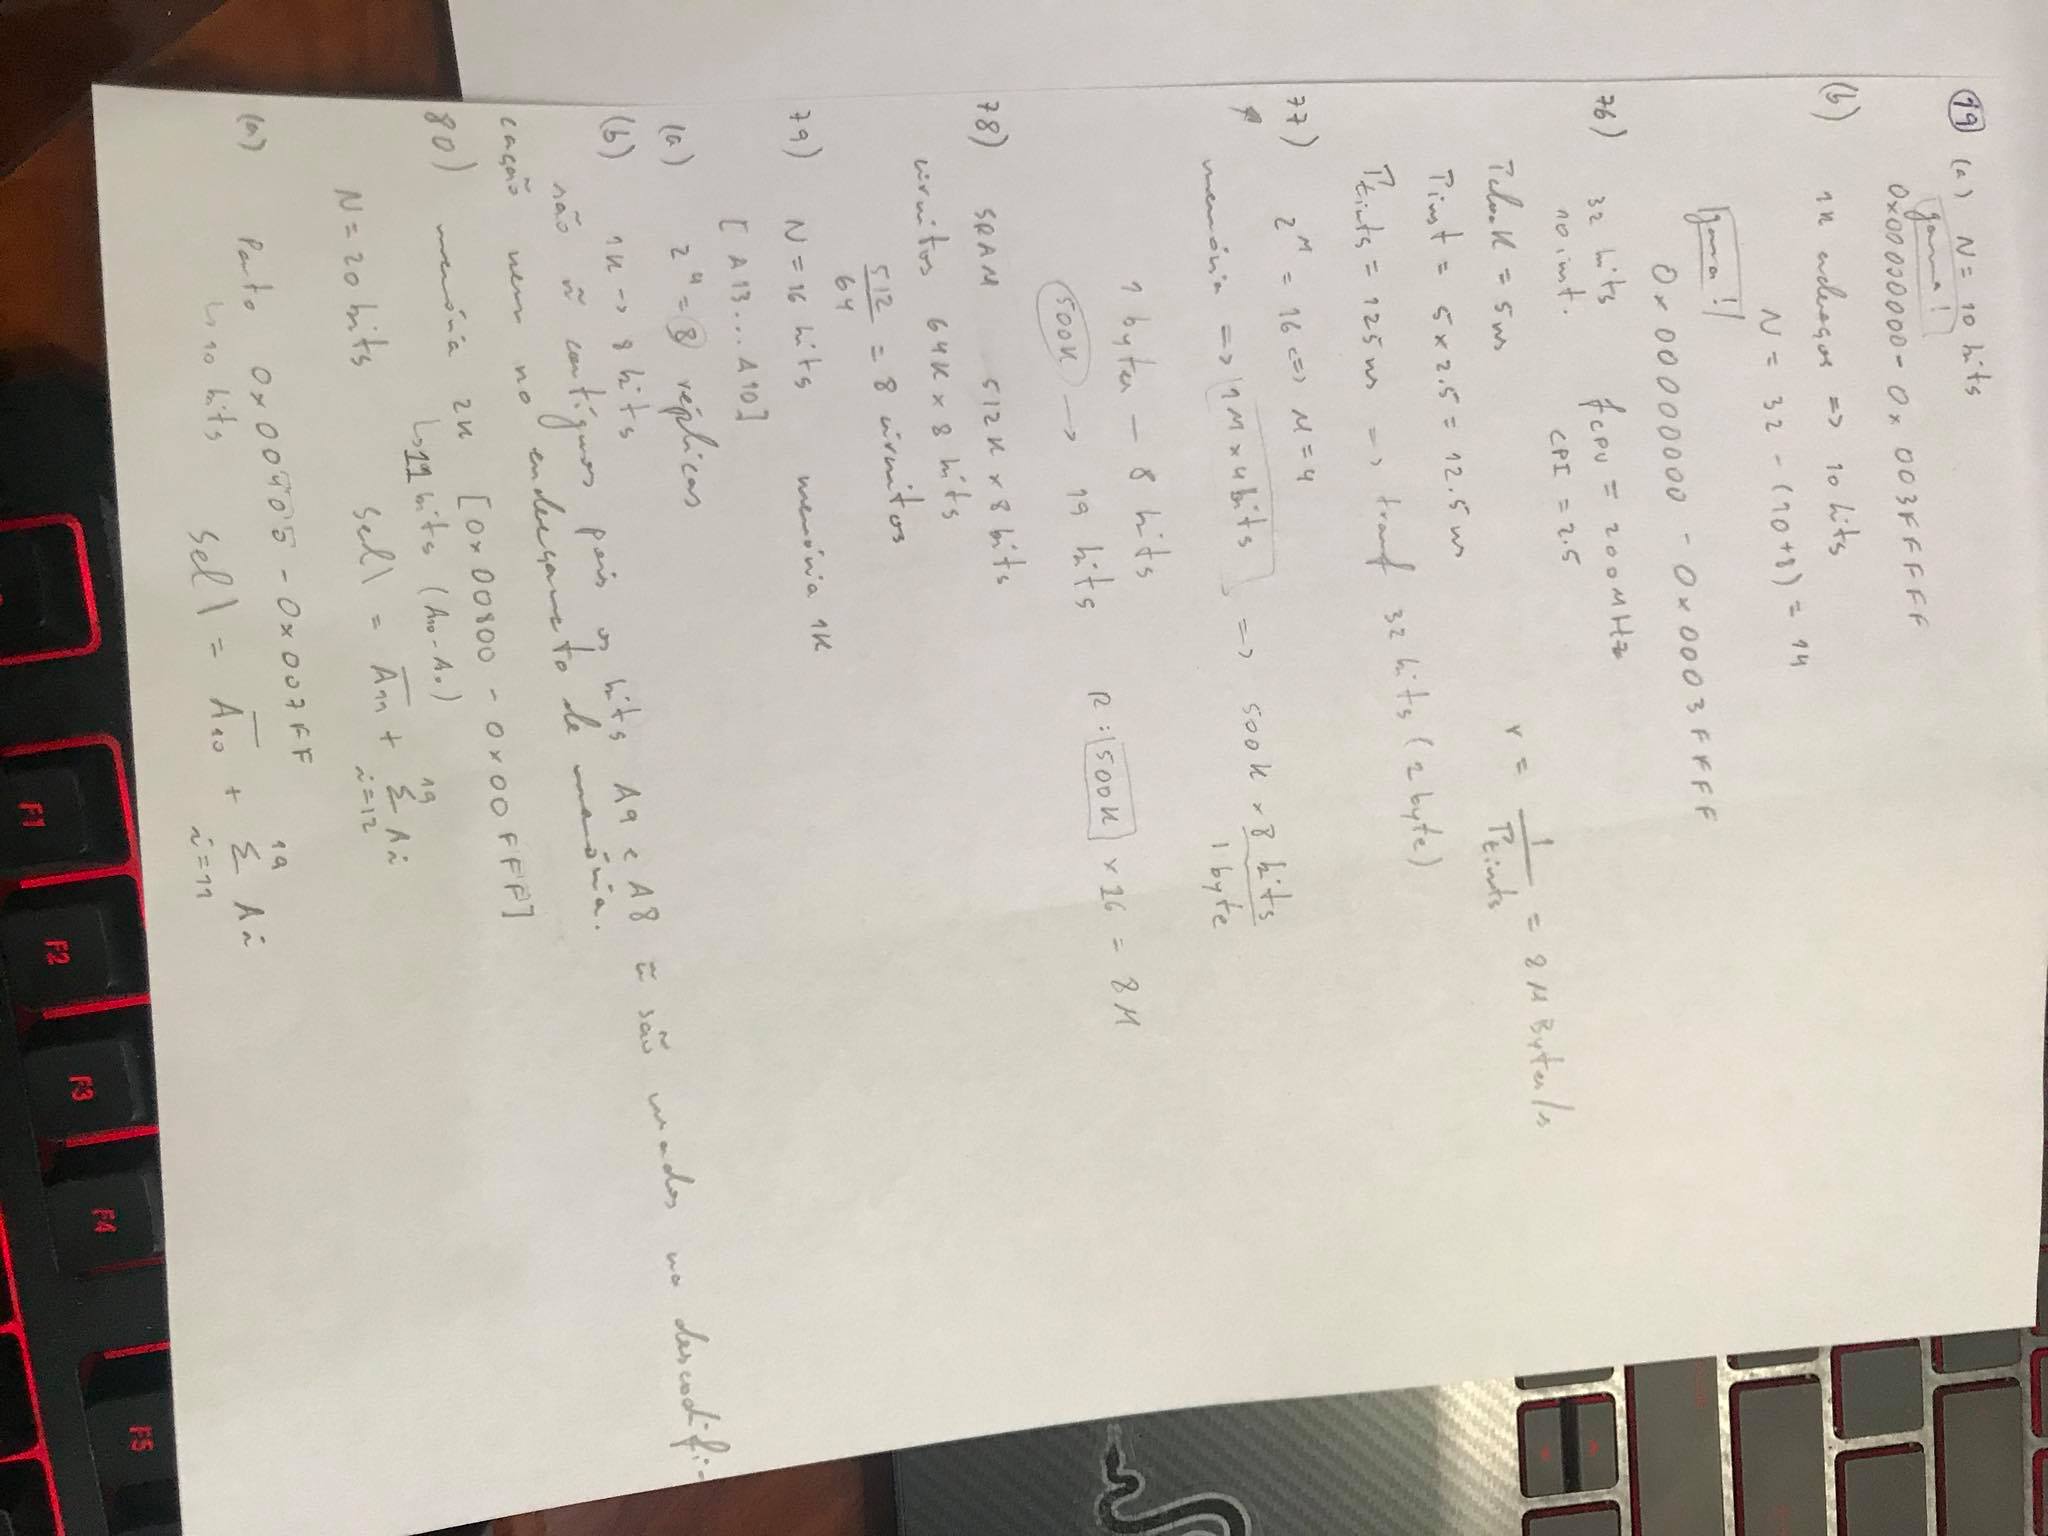 19 (a) N = 10 bits
gama!
0x00000000 - 0x003FFFFF
(b) 1K endereços => 10 bits
N = 32 - (10+8) = 14
gama!
0x00000000 - 0x0003FFFF
76) 32 bits fCPU = 200MHz
10 inst. CPI = 2.5
Tclock = 5ns
r = 1 / Ttints = 8 M Bytes/s
Tinst = 5 x 2.5 = 12.5 ns
Ttints = 125 ns => transf 32 bits (2 byte)
77) 2^M = 16 <=> M = 4
memória => 1M x 4 bits => 500K x 8 bits
1 byte
1 bytes — 8 bits
500K -> 19 bits R: 500K x 16 = 8M
78) SRAM 512K x 8 bits
circuitos 64K x 8 bits
512/64 = 8 circuitos
79) N = 16 bits memória 1K
[A13...A10]
(a) 2^4 = 8 réplicas
(b) 1K -> 8 bits
são ñ contíguos pois os bits A9 e A8 ñ são usados na descodifi-
cação nem no endereçamento de memória.
80) memória 2K [0x00800 - 0x00FFF]
↳ 11 bits (A10-A0)
N = 20 bits Sel\ = A̅11 + Σ(i=12, 19) Ai
(a) Porto 0x00400 - 0x007FF
↳ 10 bits Sel\ = A̅10 + Σ(i=11, 19) Ai
F1 F2 F3 F4 F5